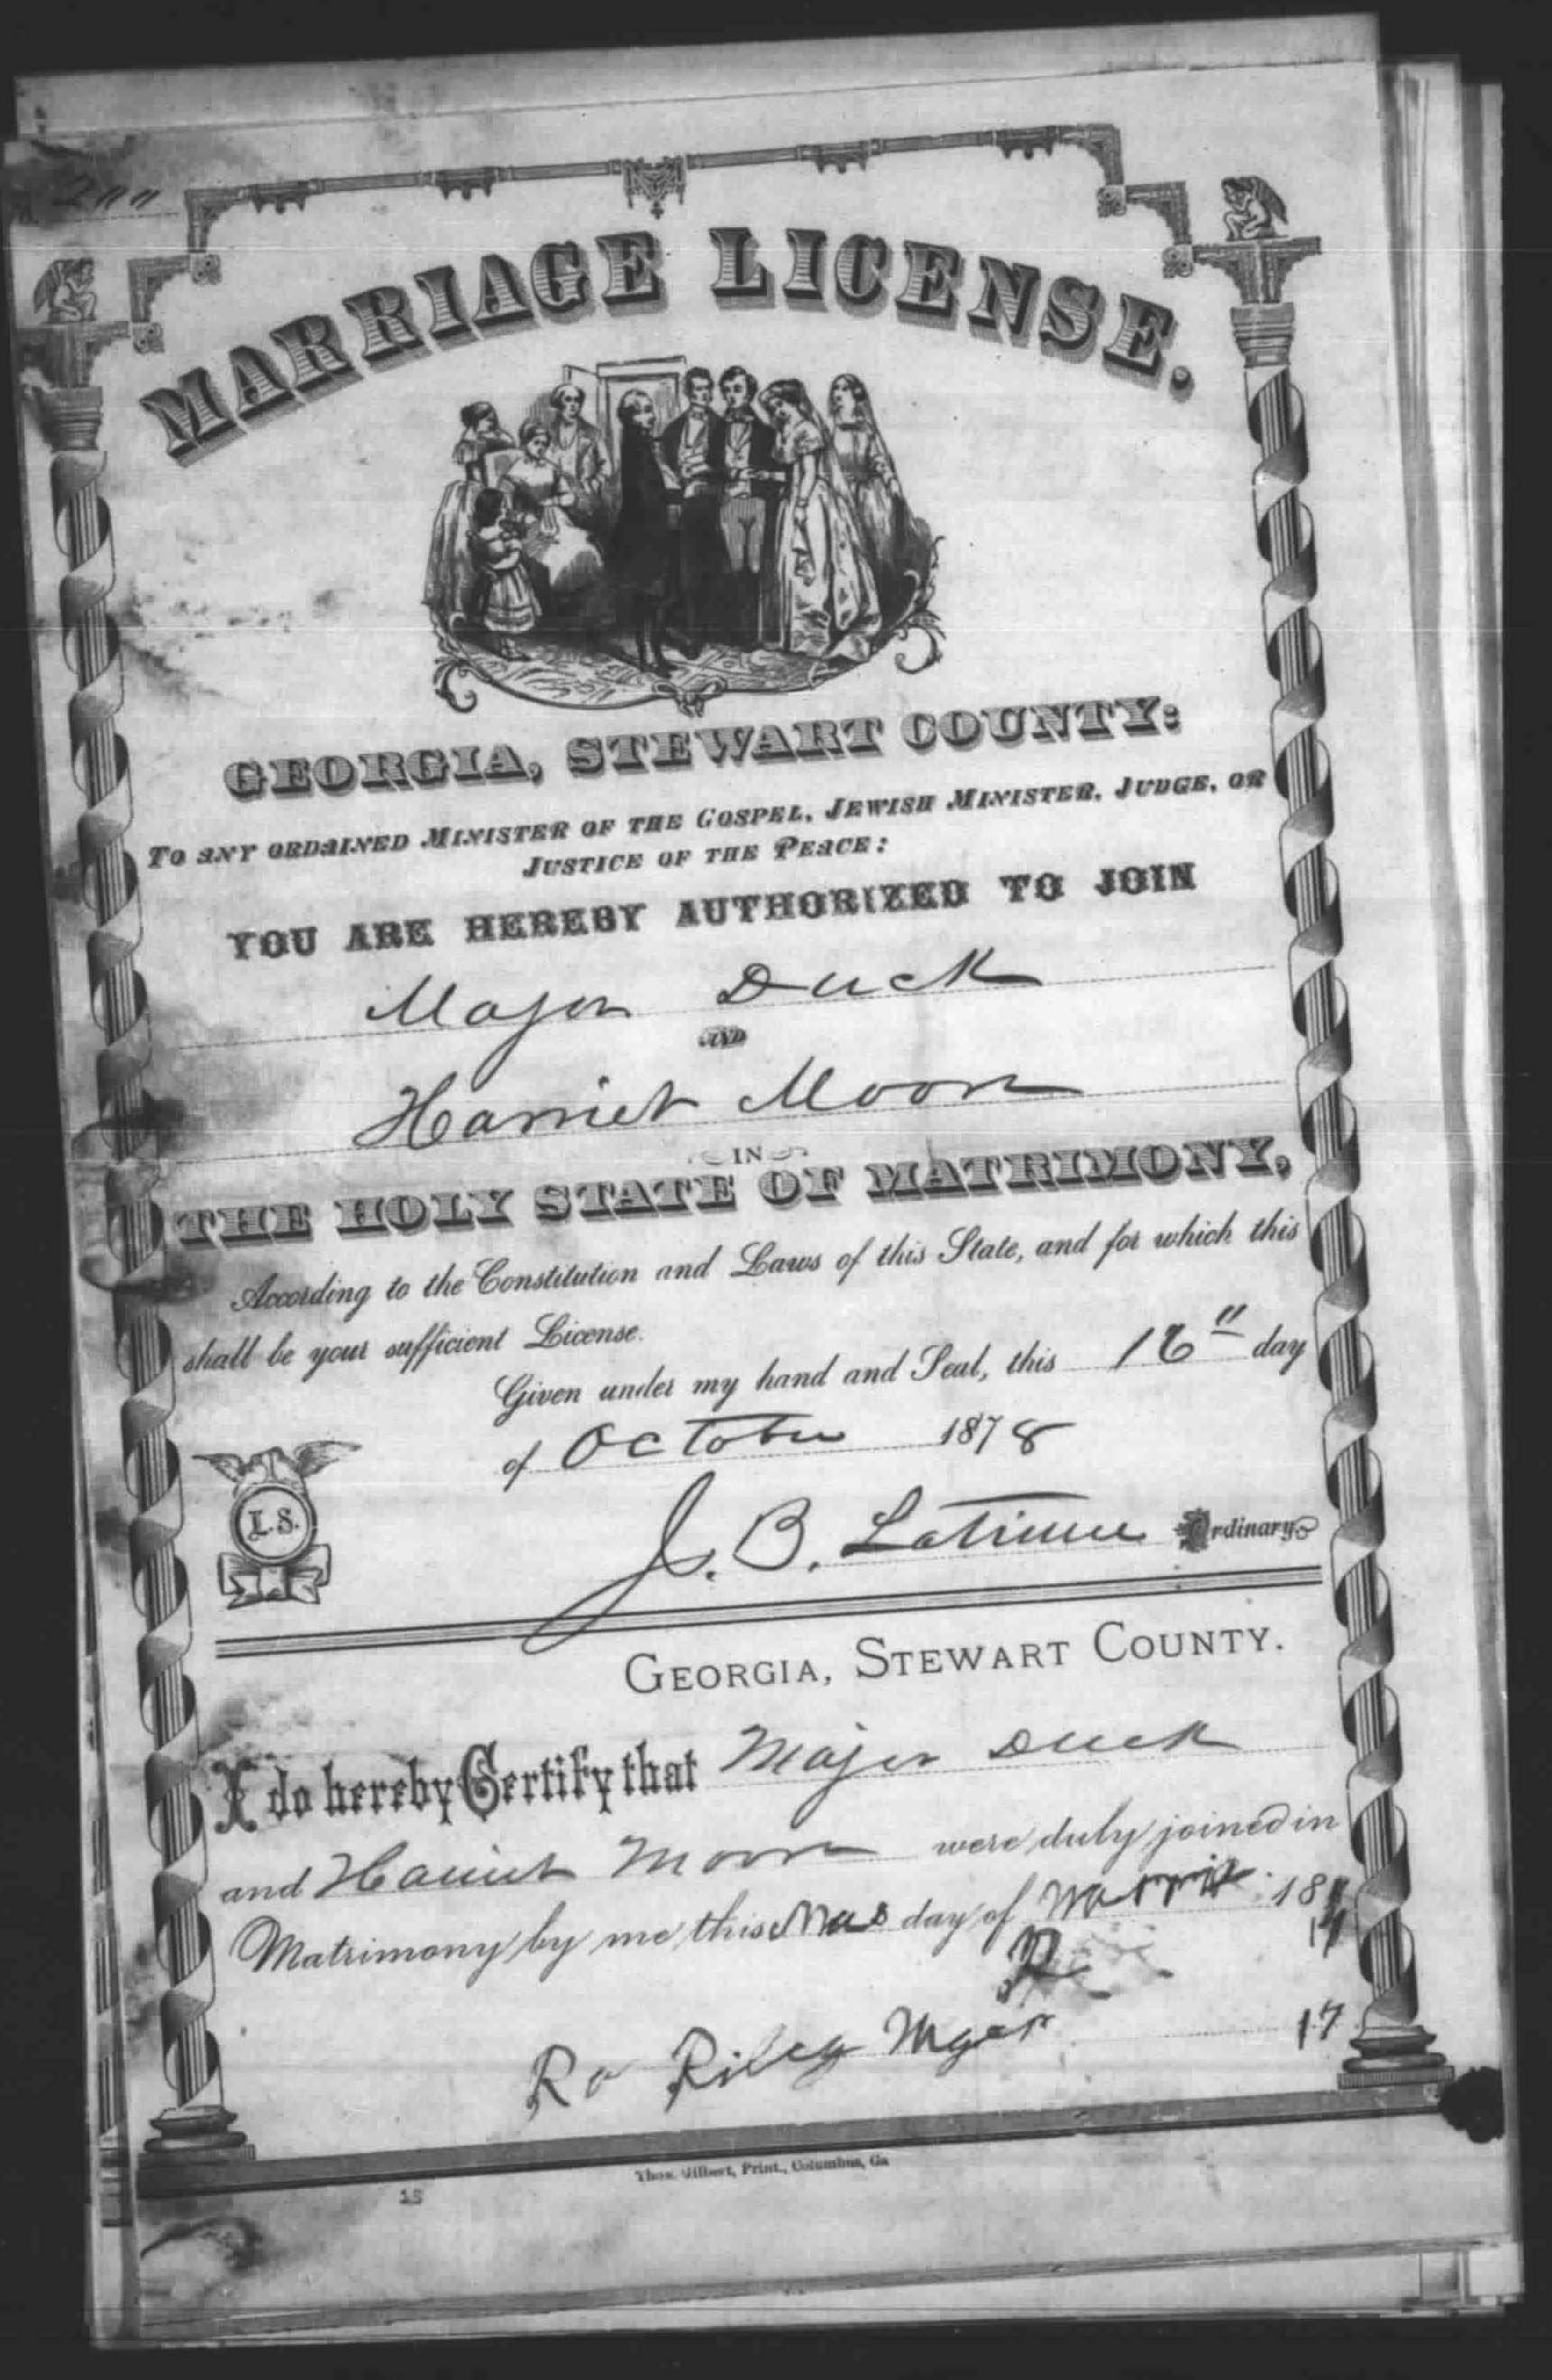 200
MARRIAGE LICENSE.
GEORGIA, STEWART COUNTY:
TO ANY ORDAINED MINISTER OF THE GOSPEL, JEWISH MINISTER, JUDGE, OR
JUSTICE OF THE PEACE:
YOU ARE HEREBY AUTHORIZED TO JOIN
Major Duck
AND
Harriet Moore
IN
THE HOLY STATE OF MATRIMONY,
According to the Constitution and Laws of this State, and for which this
shall be your sufficient License.
Given under my hand and Seal, this 16" day
of October 1878
L.S.
J. B. Latimer Ordinary
GEORGIA, STEWART COUNTY.
I do hereby Certify that Major Duck
and Harriet Moore were duly joined in
Matrimony by me this day of 18
17
Ro Riley
Thos. Gilbert, Print., Columbus, Ga